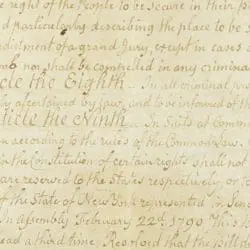 e right of the People to be secure in their p
d particularly describing the place to be s
ndictment of a grand Jury, except in cases
nor shall be controlled in any criminal
cle the Eighth In all criminal pro
ly ascertained by Law, and to be informed of th
ticle the Ninth In Suits at Common
n according to the rules of the Common Law.
n the Constitution of certain rights shall not
are reserved to the States respectively, or t
of the State of New York represented in Sena
In Assembly February 22d. 1790 This
ead a third time, Resolved that the Bill